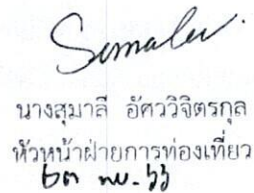 Sumalee.
นางสุมาลี อัศววิจิตรกุล
หัวหน้าฝ่ายการท่องเที่ยว
๒๓ พย. ๖๖